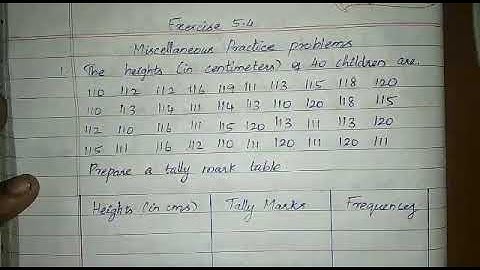 Exercise 5.4
Miscellaneous Practice problems
1. The heights (in centimeters) of 40 children are.
110 112 112 116 119 111 113 115 118 120
110 113 114 111 114 113 110 120 118 115
112 110 116 111 115 120 113 111 113 120
115 111 116 112 110 111 120 111 120 111
Prepare a tally mark table
Heights (in cms) Tally Marks Frequency